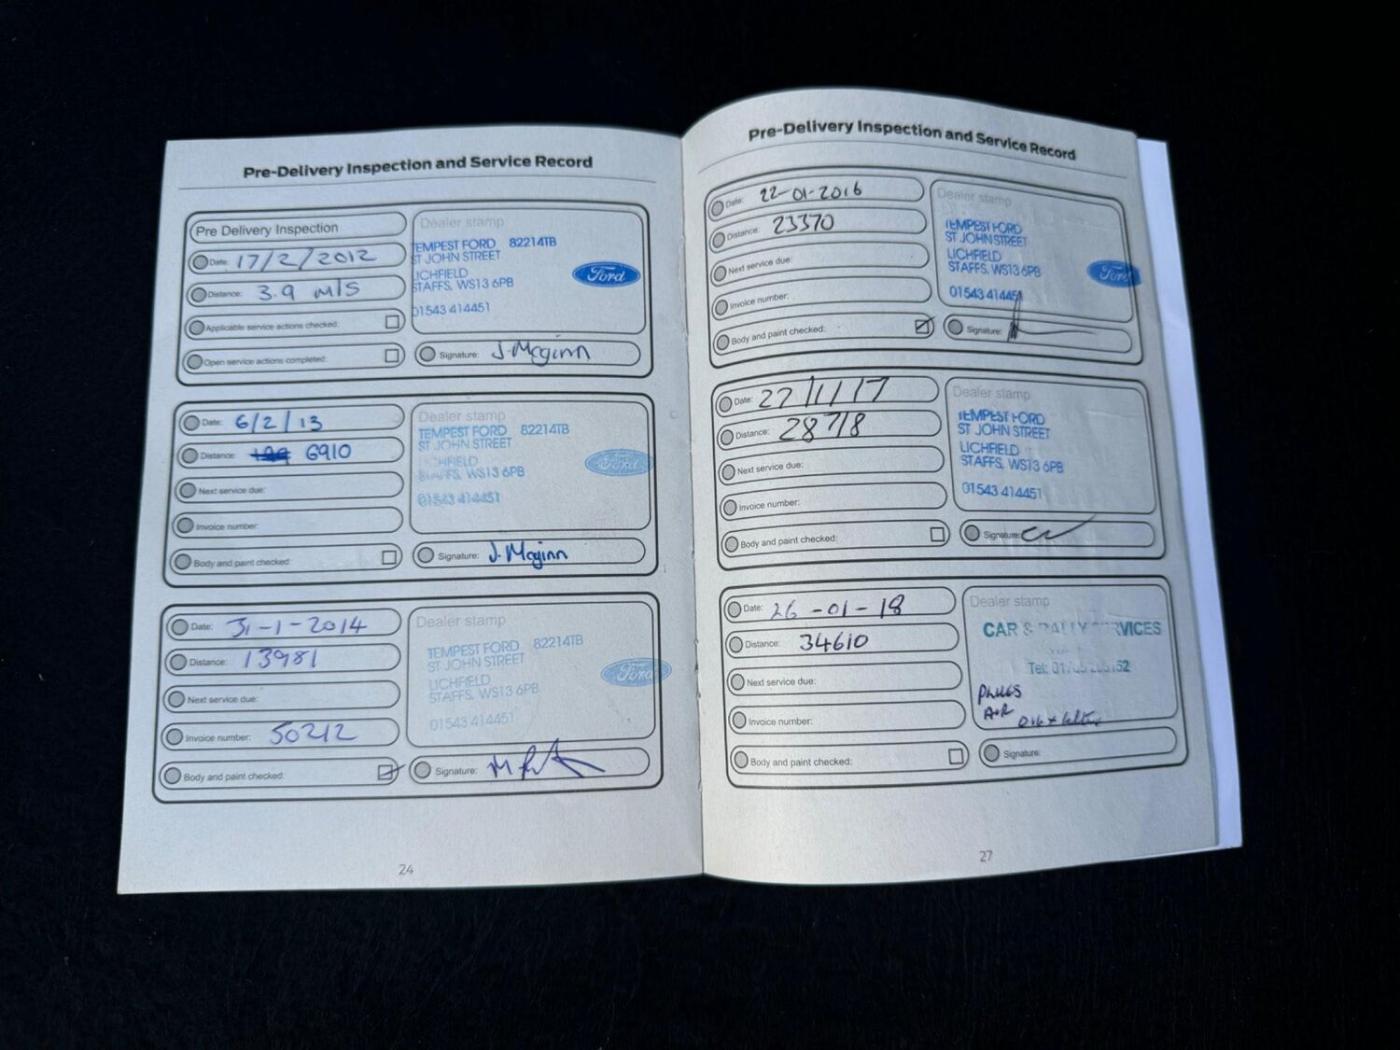 Pre-Delivery Inspection and Service Record
Pre Delivery Inspection
Date: 17/2/2012
Distance: 3.9 MIS
Applicable service actions checked:
Open service actions completed:
Dealer stamp
TEMPEST FORD 82214TB
ST JOHN STREET
LICHFIELD
STAFFS, WS13 6PB
01543 414451
Ford
Signature: J. Mcginn
Date: 6/2/13
Distance: 6910
Next service due:
Invoice number:
Body and paint checked:
Dealer stamp
TEMPEST FORD 82214TB
ST JOHN STREET
LICHFIELD
STAFFS, WS13 6PB
01543 414451
Ford
Signature: J. Mcginn
Date: 31-1-2014
Distance: 13981
Next service due:
Invoice number: 50212
Body and paint checked:
Dealer stamp
TEMPEST FORD 82214TB
ST JOHN STREET
LICHFIELD
STAFFS, WS13 6PB
01543 414451
Ford
Signature:
24
Pre-Delivery Inspection and Service Record
Date: 22-01-2016
Distance: 23370
Next service due:
Invoice number:
Body and paint checked:
Dealer stamp
TEMPEST FORD
ST JOHN STREET
LICHFIELD
STAFFS, WS13 6PB
01543 414451
Ford
Signature:
Date: 27/1/17
Distance: 28718
Next service due:
Invoice number:
Body and paint checked:
Dealer stamp
TEMPEST FORD
ST JOHN STREET
LICHFIELD
STAFFS, WS13 6PB
01543 414451
Signature:
Date: 26-01-18
Distance: 34610
Next service due:
Invoice number:
Body and paint checked:
Dealer stamp
CAR & RALLY SERVICES
Tel:
PLUGS
AIR
Signature:
27